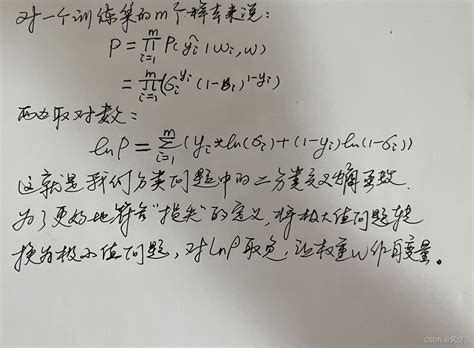 对一个训练集的m个样本来说：
P = ∏_{i=1}^{m} P(ŷi | wi, w)
= ∏_{i=1}^{m} (σi^{yi} (1-σi)^{1-yi})
两边取对数：
lnP = ∑_{i=1}^{m} (yi*ln(σi)+(1-yi)ln(1-σi))
这就是我们分类问题中的二分类交叉熵函数.
为了更好地符合"损失"的定义，将极大值问题转
换为极小值问题，对lnP取负，让权重w作自变量。
CSDN @风情_